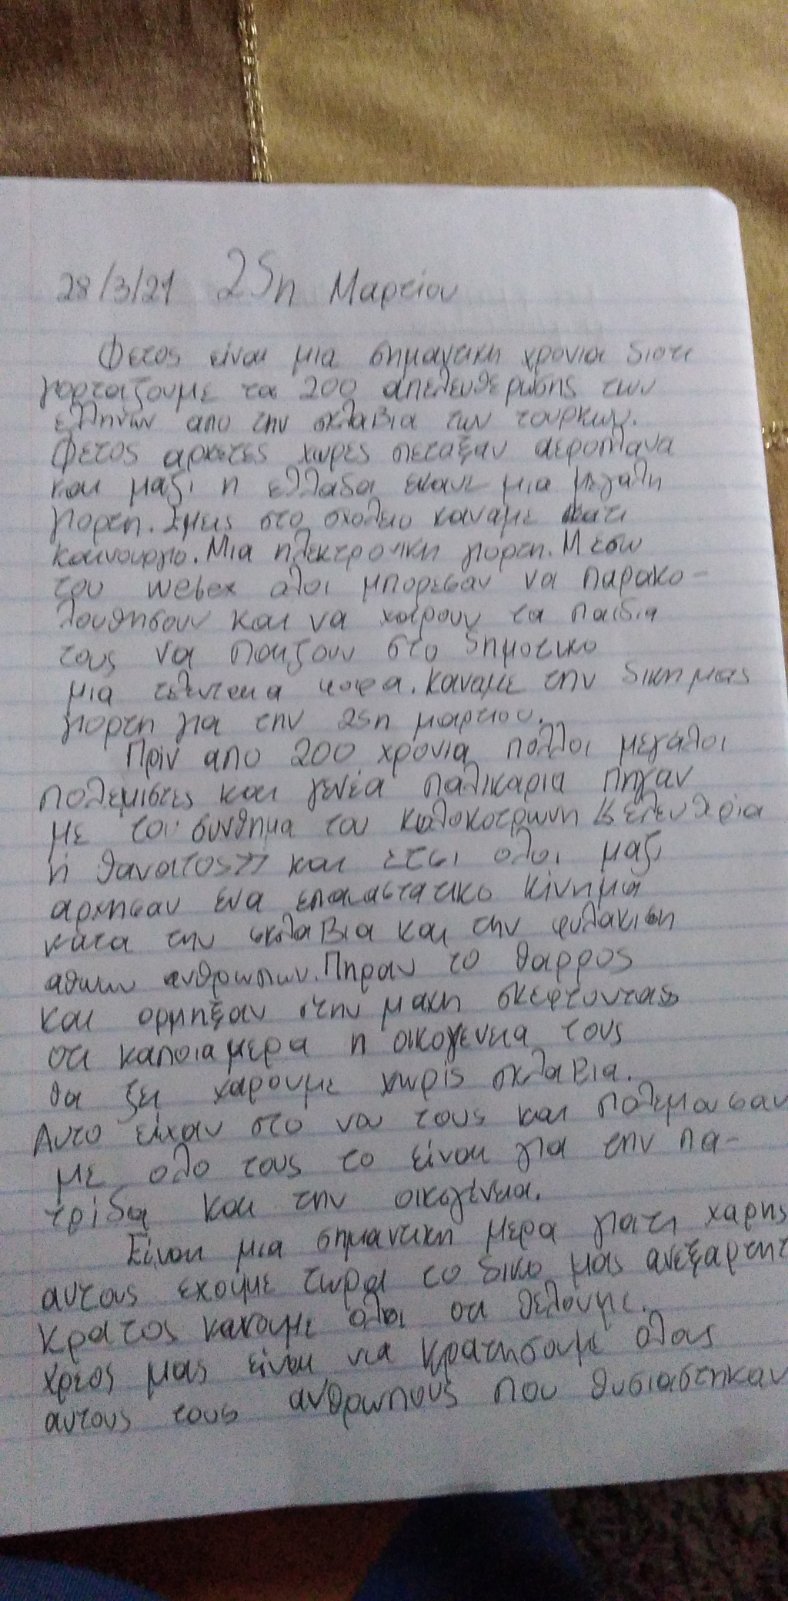 28/3/21 25η Μαρτίου
Φετος είναι μια σημαντικη χρονια διοτι
γιορταζουμε τα 200 απελευθερωσης των
ελληνων απο την σκλαβια των τουρκων.
Φετος αρκετες χωρες πεταξαν αεροπλανα
και μαζι η ελλαδα εκανε μια μεγαλη
γιορτη. Εμεις στο σχολειο καναμε κατι
καινουργιο. Μια ηλεκτρονικη γιορτη. Μεσω
του webex ολοι μπορεσαν να παρακο-
λουθησουν και να χαρουν τα παιδια
τους να παιζουν στο δημοτικο
μια τελευταια φορα. Καναμε την δικη μας
γιορτη για την 25η μαρτιου.
Πρίν απο 200 χρόνια πολλοι μεγαλοι
πολεμιστες και γενέα παλικαρια πηγαν
με του συνθημα του κολοκοτρωνη <<ελευθερια
ή θανατος>> και ετσι ολοι μαζι
αρχησαν ενα επαναστατικο κίνημα
κατα την σκλαβια και την φυλακιση
αθωων ανθρωπων. Πηραν το θαρρος
και ορμηξαν στην μαχη σκεφτοντας
οτι καποια μερα η οικογενεια τους
θα ζει χαρουμε χωρίς σκλαβια.
Αυτο ειχαν στο νου τους και πολεμουσαν
με ολο τους το είναι για την πα-
τρίδα και την οικογένεια.
Είναι μια σημαντικη μερα γιατι χαρης
αυτους εχουμε τωρα το δικο μας ανεξαρτητ
κρατος κανουμε ολοι οτι θελουμε.
χρεος μας είναι να κρατησουμε ολους
αυτους τους ανθρωπους που θυσιαστηκαν